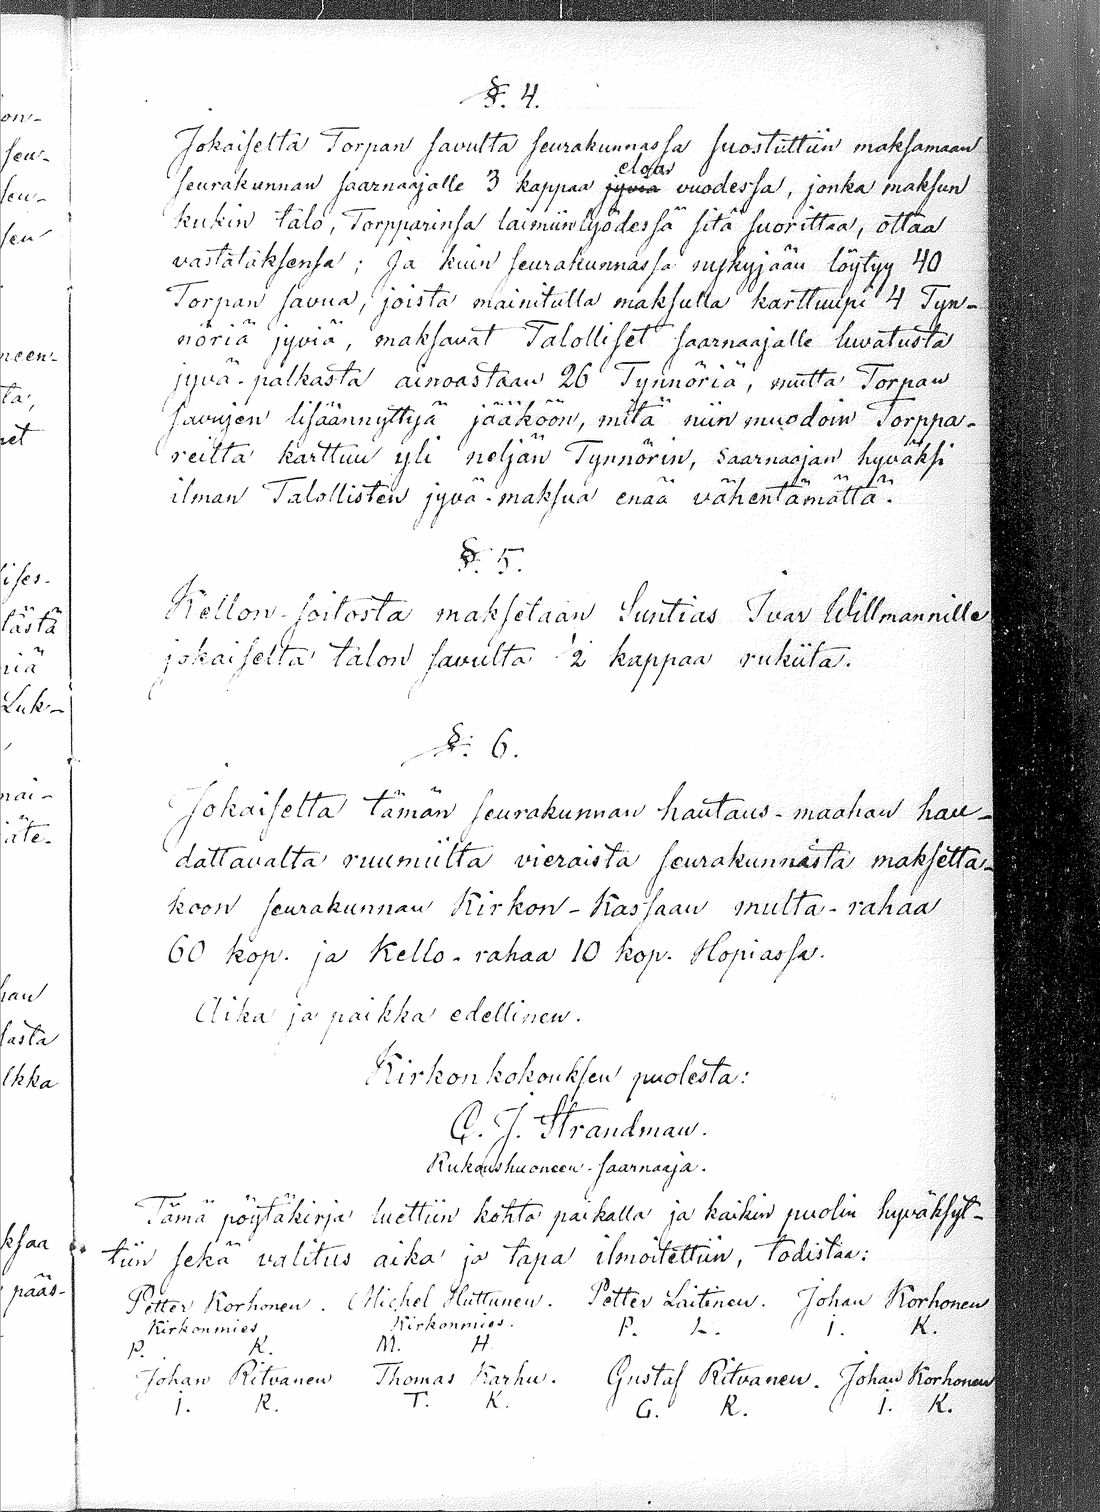 on-
seu-
seu-
seu
neen-
ta,
net
lises-
tästä
niä
Luk-
mai-
jäte-
han
sasta
lkka
ksaa
pääs-
§. 4.
Jokaiselta Torpan savulta seurakunnassa suostuttiin maksamaan
eloa
seurakunnan saarnaajalle 3 kappaa jyviä vuodessa, jonka maksun
kukin talo, Torpparinsa laimiinlyödessä sitä suorittaa, ottaa
vastataksensa; Ja kuin seurakunnassa nykyjään löytyy 40
Torpan savua, joista mainitulla maksulla karttuupi 4 Tyn-
nöriä jyviä, maksavat Talolliset saarnaajalle luvatusta
jyvä-palkasta ainoastaan 26 Tynnöriä, mutta Torpan
savujen lisäännyttyä jääköön, mitä niin muodoin Torppa-
reilta karttuu yli neljän Tynnörin, saarnaajan hyväksi
ilman Talollisten jyvä-maksua enää vähentämättä.
§. 5.
Kellon-soitosta maksetaan Suntias Ivar Willmannille
jokaiselta talon savulta 1/2 kappaa rukiita.
§. 6.
Jokaiselta tämän seurakunnan hautaus-maahan hau-
dattavalta ruumiilta vieraista seurakunnista maksetta-
koon seurakunnan Kirkon-Kassaan multa-rahaa
60 kop. ja Kello-rahaa 10 kop. Hopiassa.
Aika ja paikka edellinen.
Kirkonkokouksen puolesta:
C. J. Strandman.
Rukoushuoneen-saarnaaja.
Tämä pöytäkirja luettiin kohta paikalla ja kaikin puolin hyväksyt-
tiin sekä valitus aika ja tapa ilmoitettiin, todistaa:
Petter Korhonen. Michel Huttunen. Petter Laitinen. Johan Korhonen
Kirkonmies Kirkonmies. P. L. I. K.
P. K. M. H
Johan Ritvanen Thomas Karhu. Gustaf Ritvanen. Johan Korhonen
I. R. T. K. G. R. I. K.